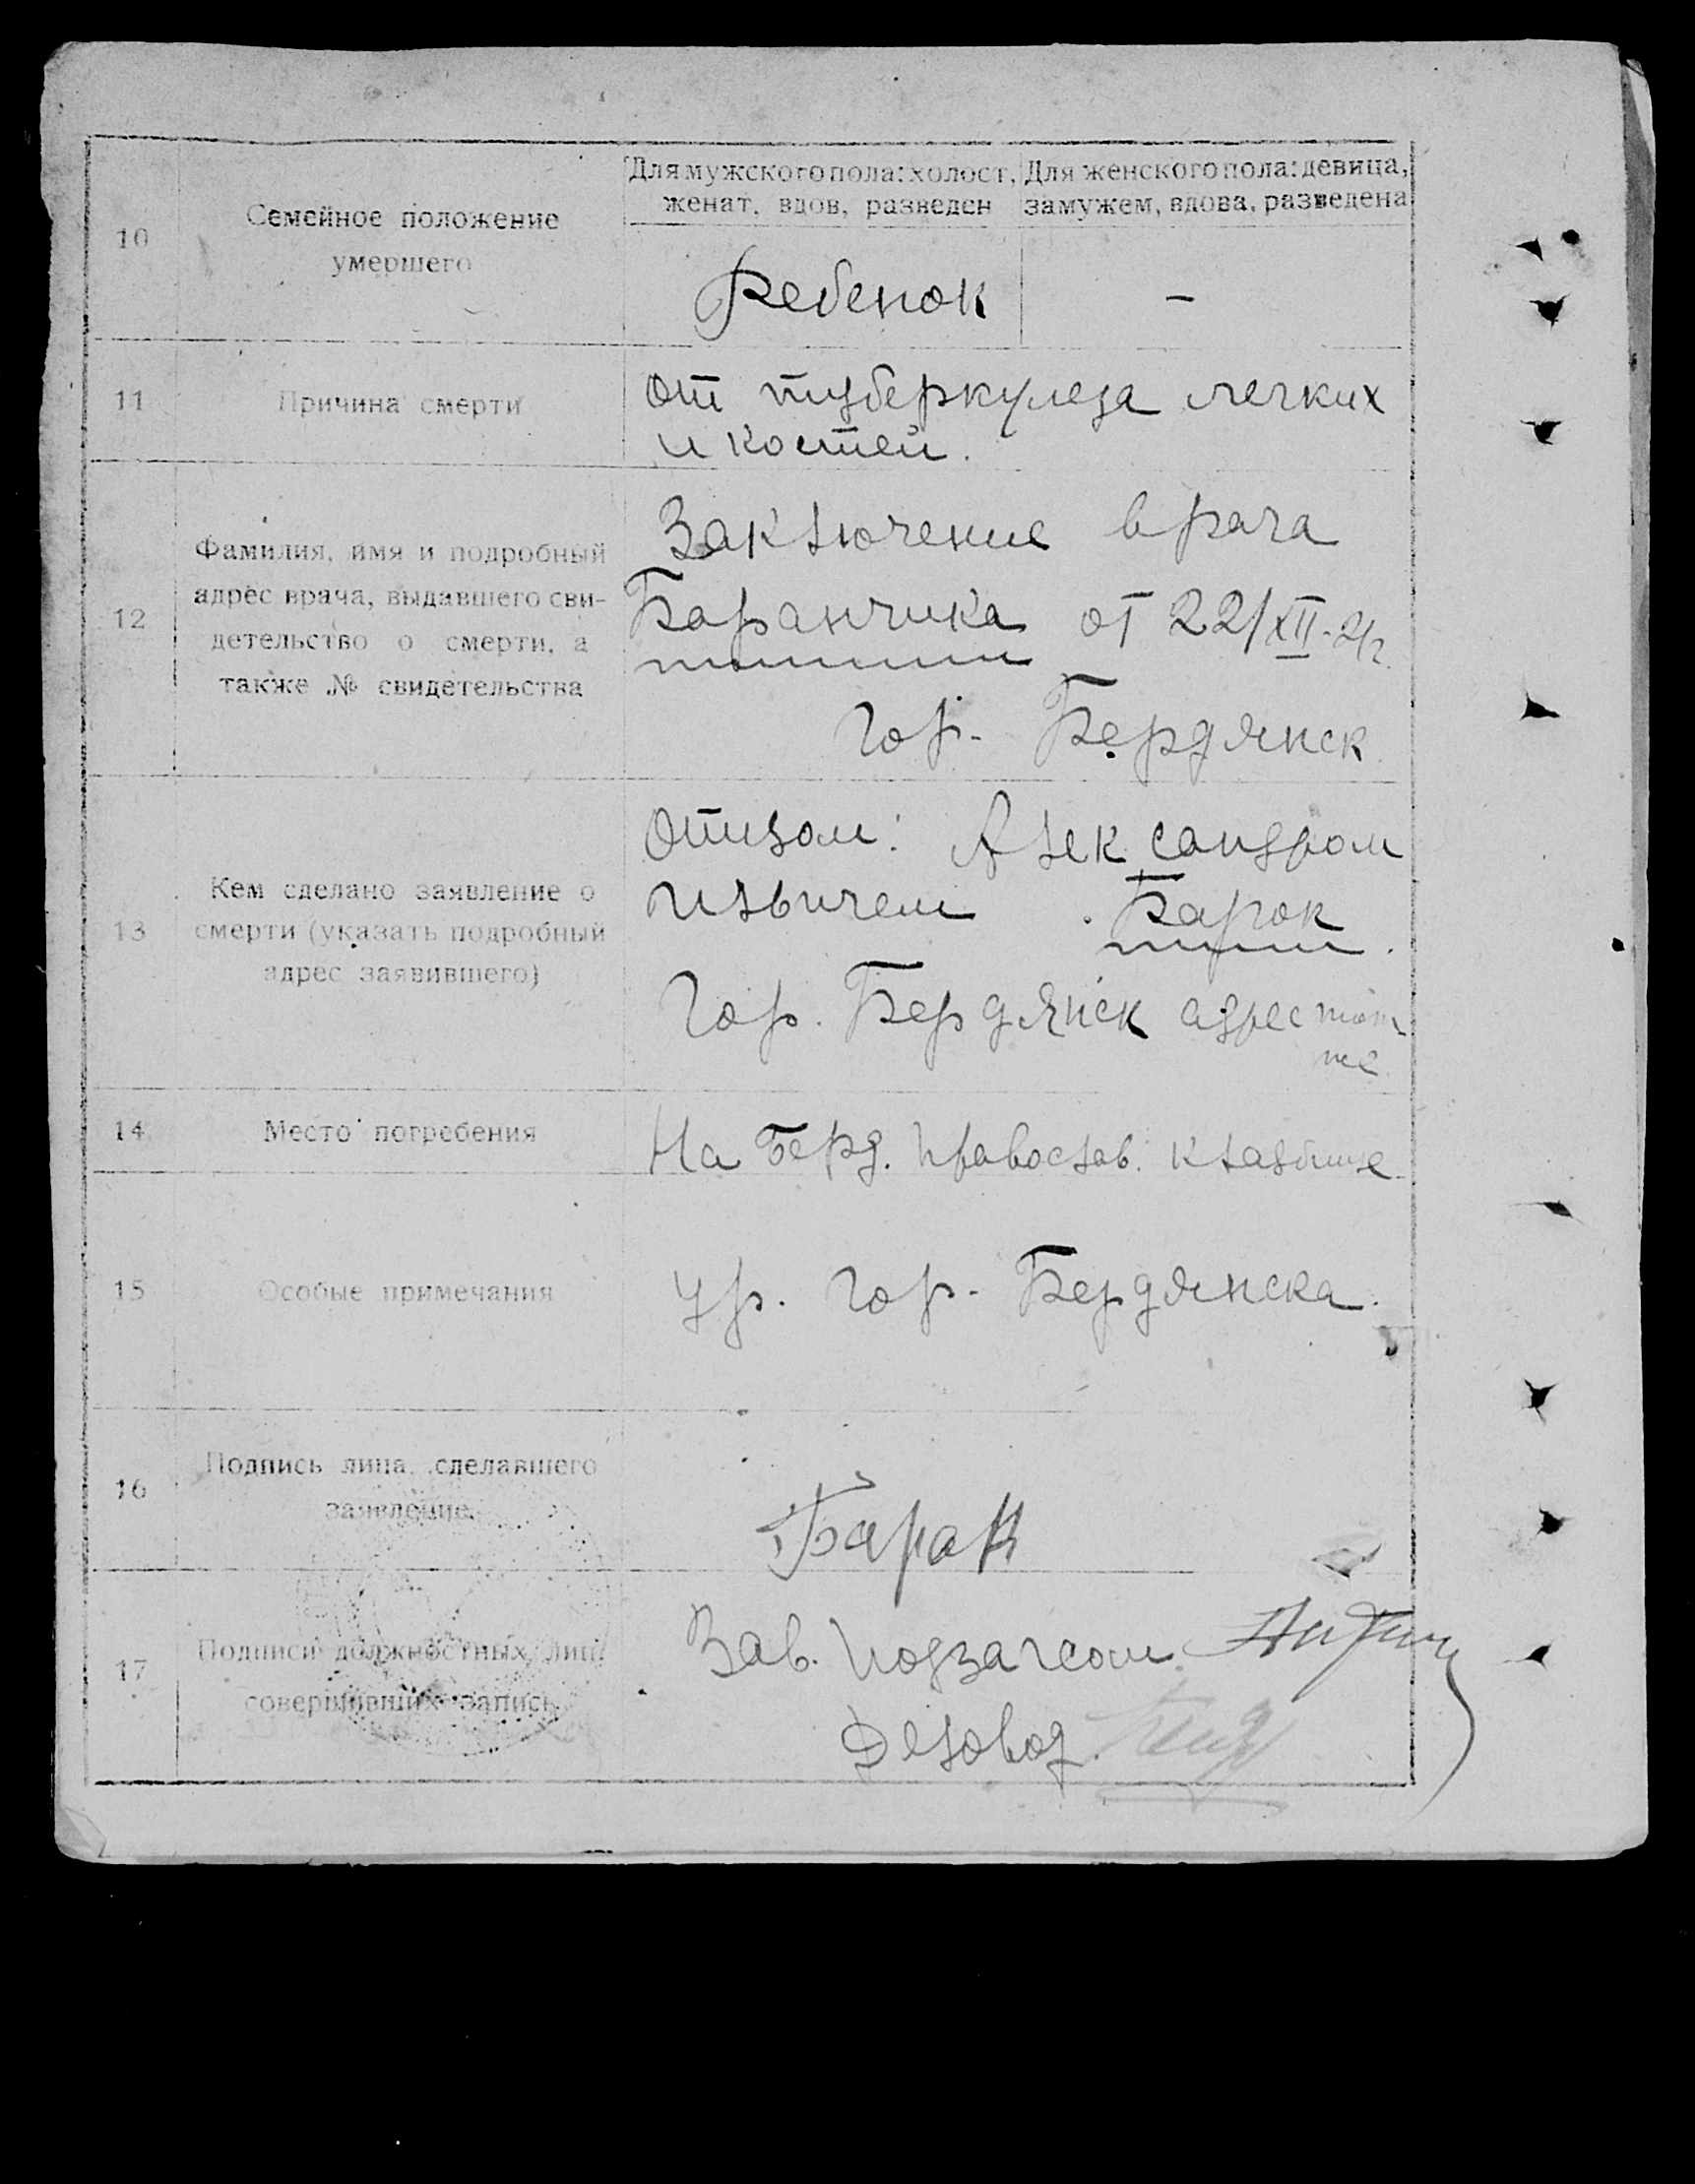 Для мужского пола: холост, женат, вдов, разведен
Для женского пола: девица, замужем, вдова, разведена
10
Семейное положение
умершего
Ребенок
-
11
Причина смерти
От туберкулеза легких
и костей.
12
Фамилия, имя и подробный
адрес врача, выдавшего сви-
детельство о смерти, а
также № свидетельства
Заключение врача
Баранчика от 22/XII-
Гор. Бердянск
13
Кем сделано заявление о
смерти (указать подробный
адрес заявившего)
Отцом: Александром
Ильичем Барок
Гор. Бердянск адрес тот
же
14
Место погребения
На Берд. Православ. кладбище
15
Особые примечания
Ур. гор. Бердянска.
16
Подпись лица, сделавшего
заявление
Барак
17
Подписи должностных лиц,
совершивших запись
Зав. Подзагсом
Деловод.